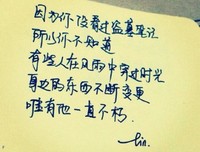 因为你没看过盗墓笔记
所以你不知道
有些人在风雨中穿过时光
身边的东西不断变更
唯有他一直不朽.
lin.